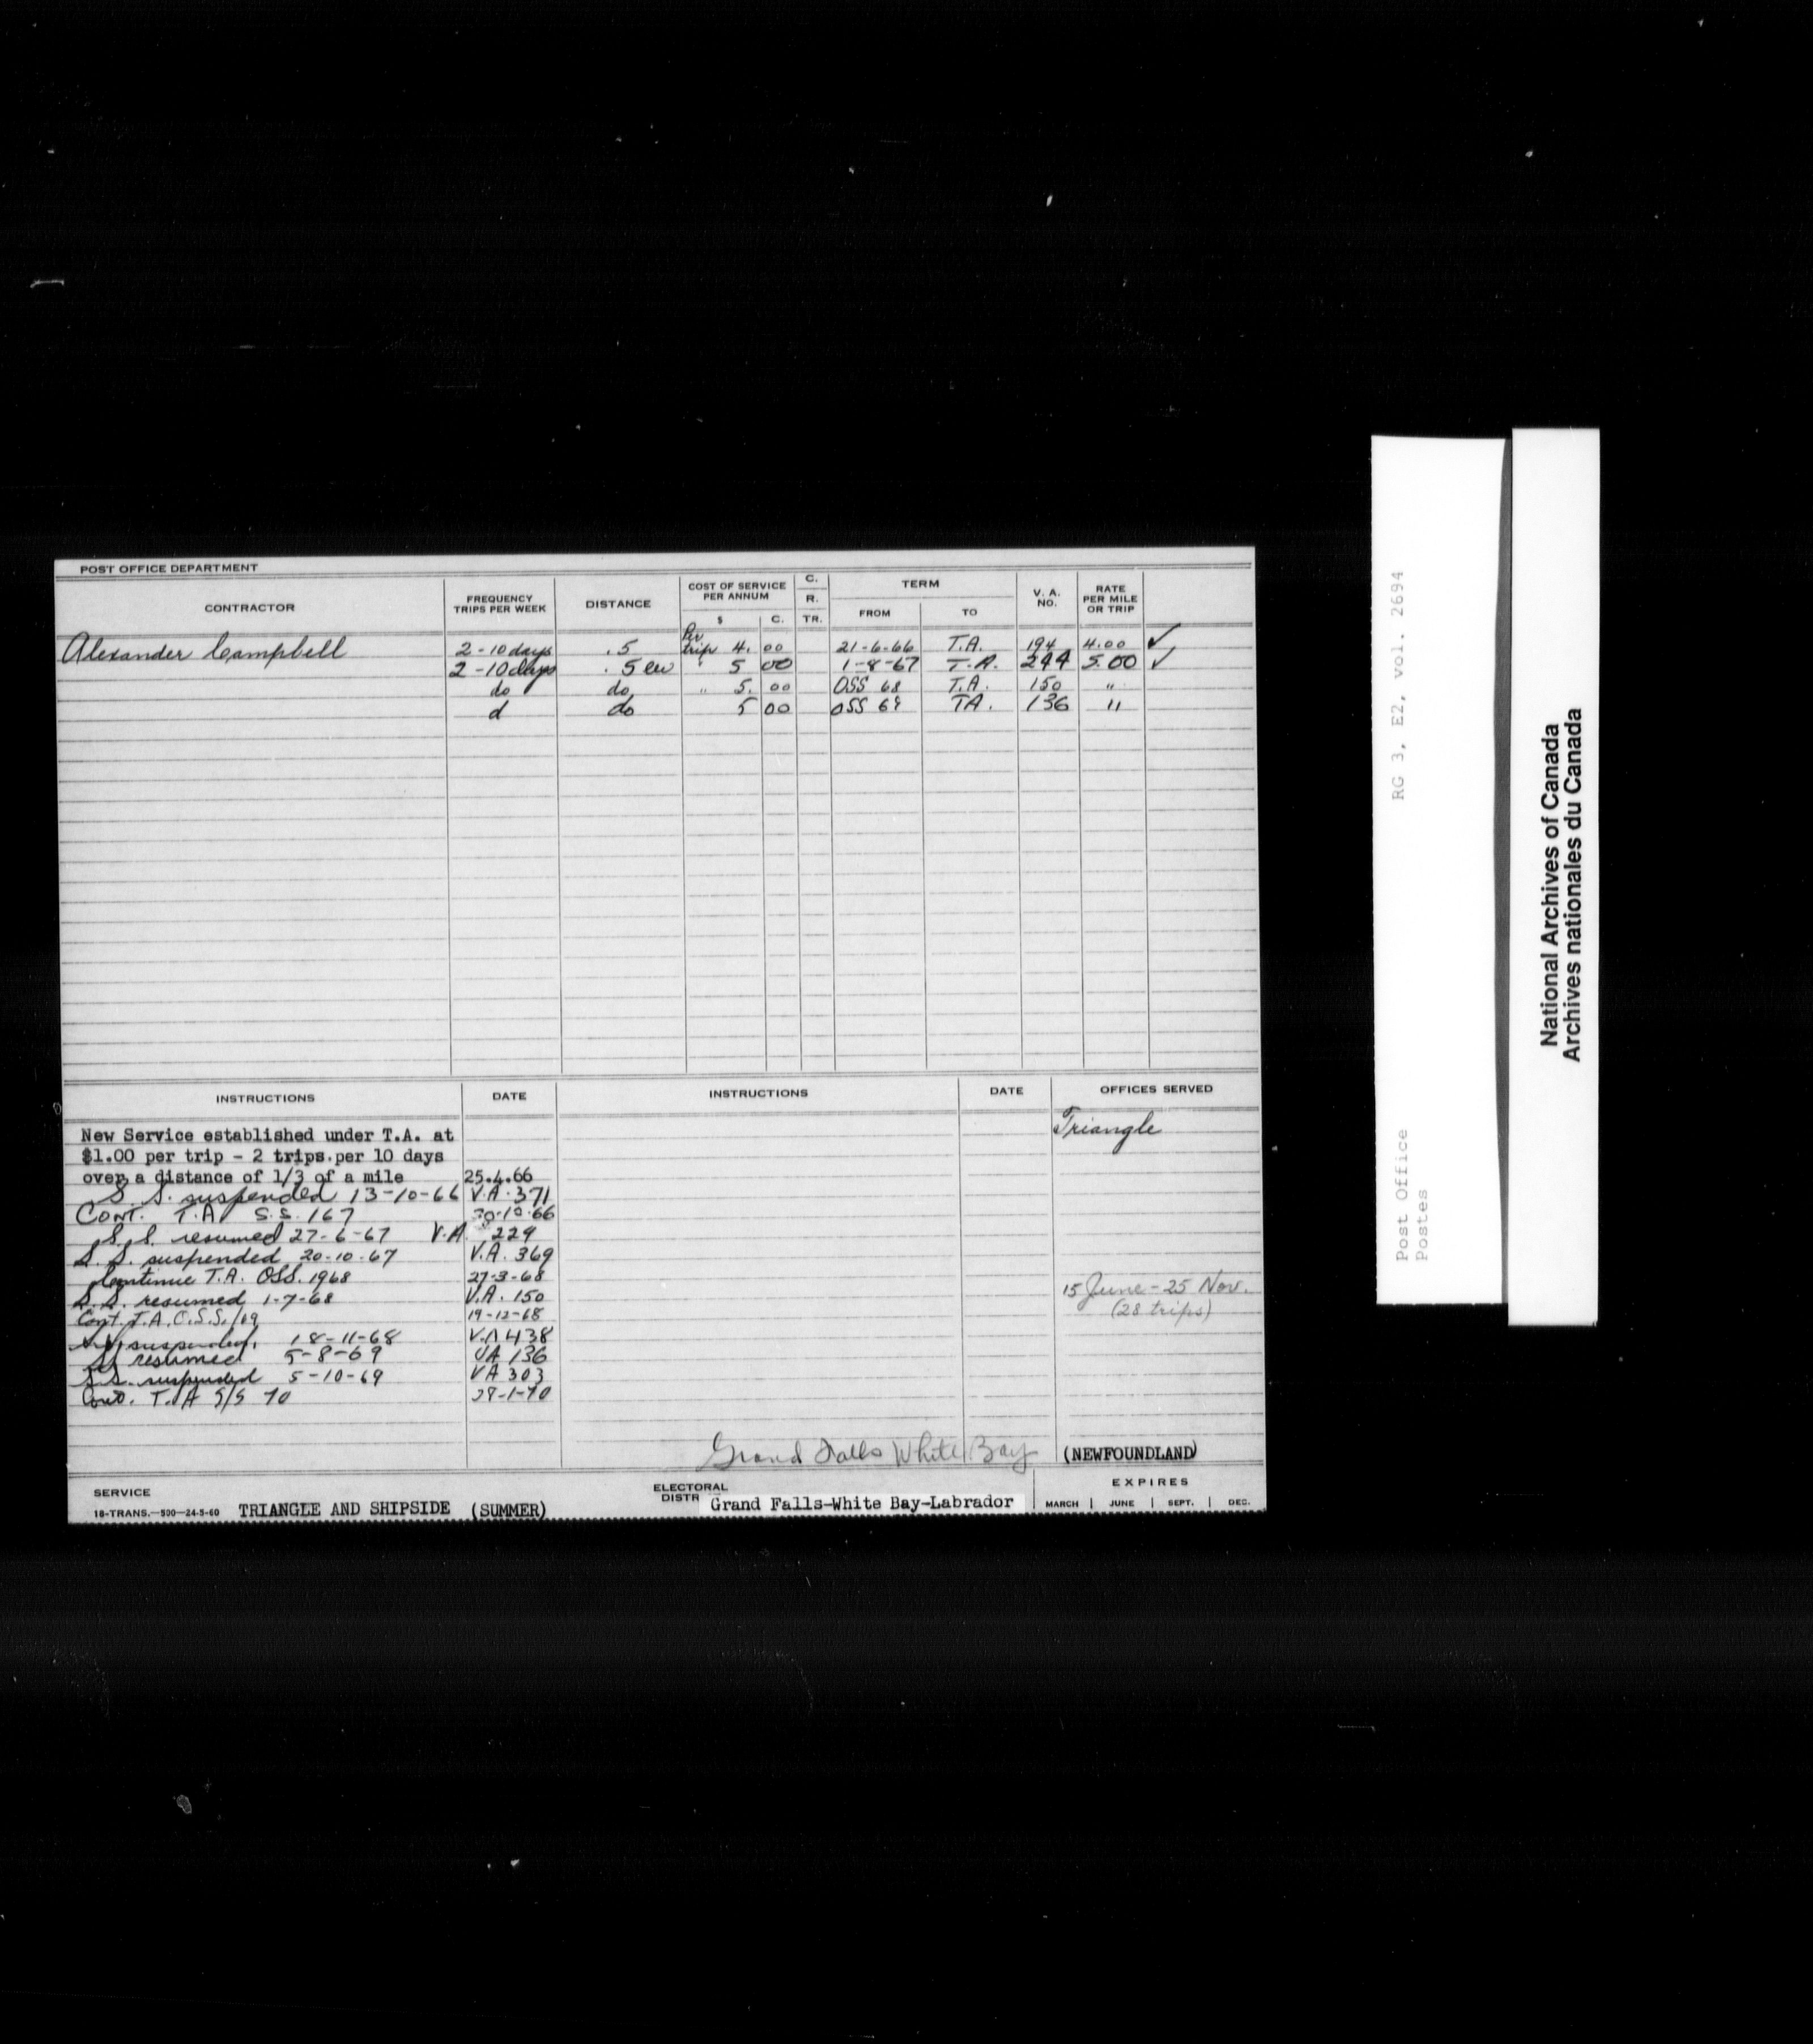 POST OFFICE DEPARTMENT
CONTRACTOR FREQUENCY TRIPS PER WEEK DISTANCE COST OF SERVICE PER ANNUM $ C. C. R. TR. TERM FROM TO V. A. NO. RATE PER MILE OR TRIP
Alexander Campbell 2-10 days .5 Per trip 4.00 21-6-66 T.A. 194 4.00 ✓
2-10 days .5 " 5 00 1-8-67 T.A. 244 5.00 ✓
do do " 5.00 OSS 68 T.A. 150 "
d do 5 00 OSS 69 TA. 136 "
INSTRUCTIONS DATE INSTRUCTIONS DATE OFFICES SERVED
Triangle
New Service established under T.A. at
$1.00 per trip - 2 trips per 10 days
over a distance of 1/3 of a mile 25.4.66
S. S. suspended 13-10-66 V.A. 371
CONT. T.A S.S. 167 30-10-66
S.S. resumed 27-6-67 V.A. 229
S. S. suspended 20-10-67 V.A. 369
Continue T.A. OSS. 1968 27-3-68
S.S. resumed 1-7-68 V.A. 150
Cont. T.A. O.S.S./69 19-12-68
suspended 18-11-68 V.A 438
SS resumed 5-8-69 VA 136
S.S. suspended 5-10-69 VA 303
Cont. T.A S/S 70 28-1-70
15 June-25 Nov.
(28 trips)
Grand Falls White Bay (NEWFOUNDLAND)
SERVICE
18-TRANS.—500—24-5-60 TRIANGLE AND SHIPSIDE (SUMMER)
ELECTORAL
DISTR Grand Falls-White Bay-Labrador
EXPIRES
MARCH | JUNE | SEPT. | DEC.
Post Office RG 3, E2, vol. 2694
Postes
National Archives of Canada
Archives nationales du Canada